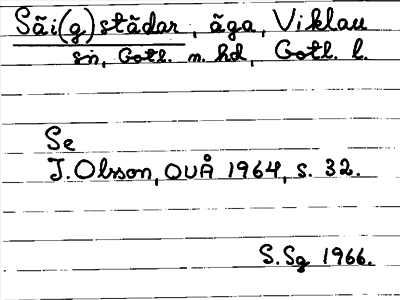 Säi(g)städar, äga, Viklau
sn, Gotl. n. hd, Gotl. l.
Se
I. Olsson, OUÅ 1964, s. 32.
S.Sg 1966.